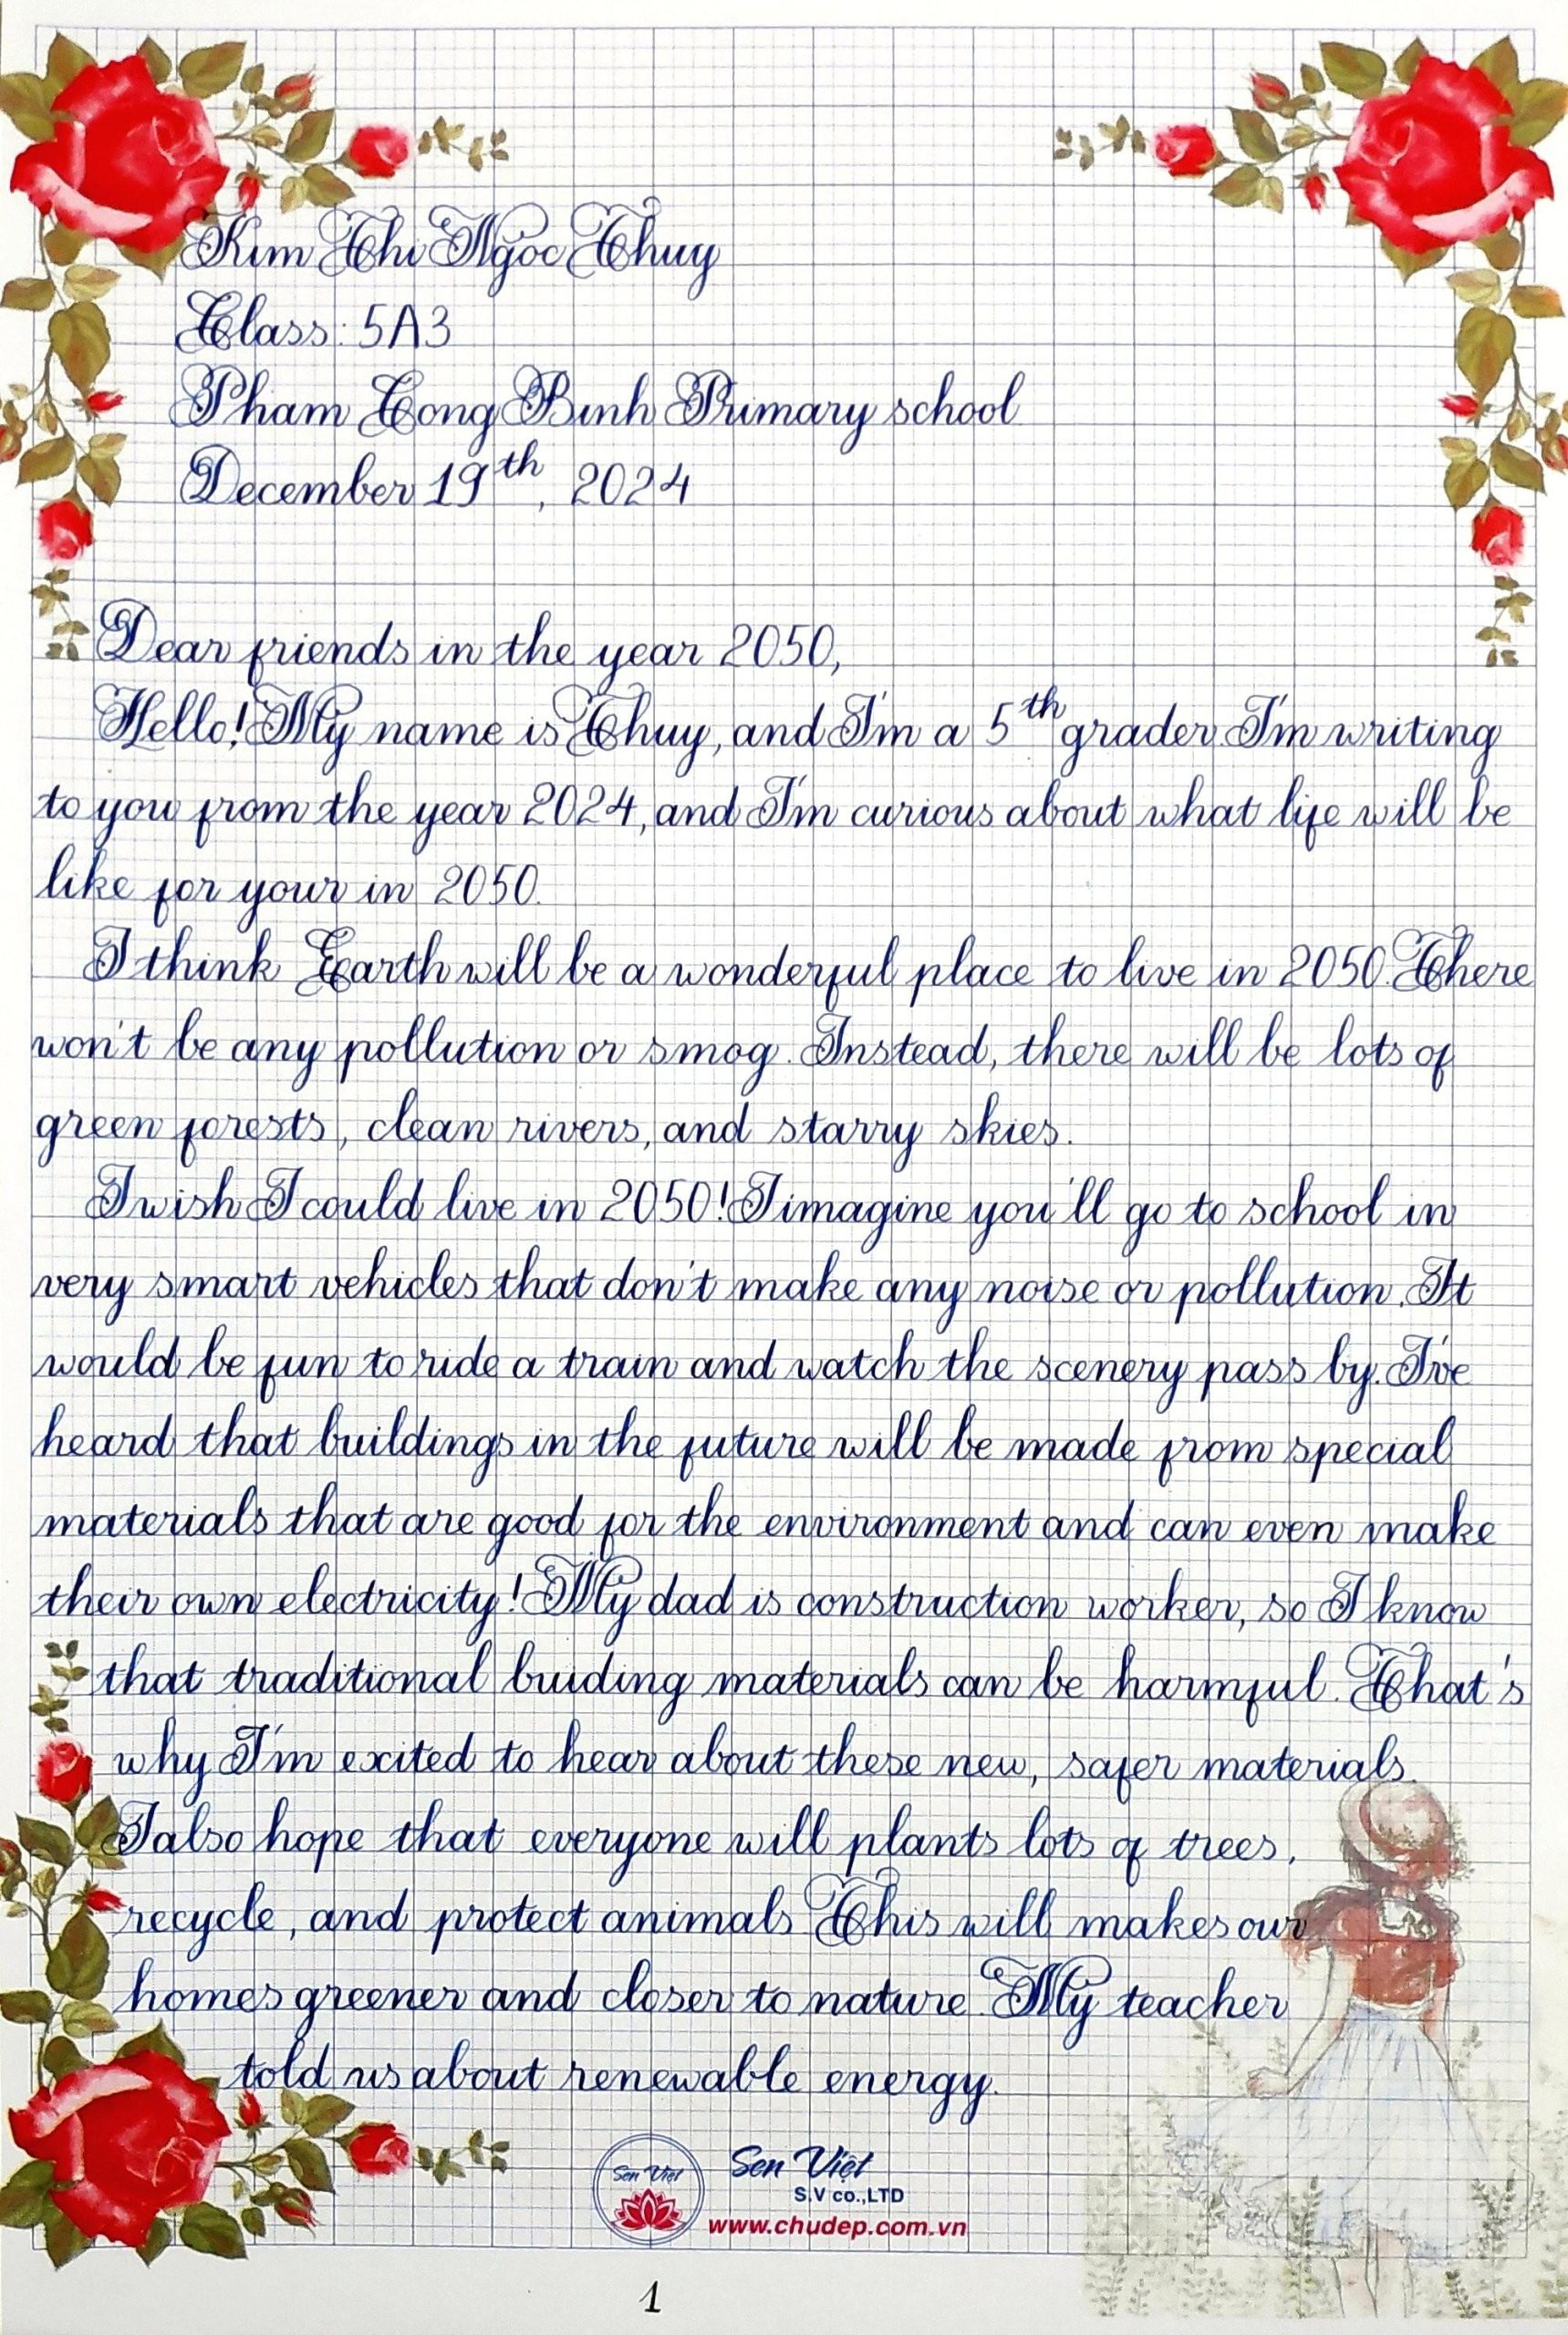 Kim Thi Ngoc Thuy
Class: 5A3
Pham Cong Binh Primary school
December 19th, 2024
Dear friends in the year 2050,
Hello! My name is Thuy, and I'm a 5th grader. I'm writing
to you from the year 2024, and I'm curious about what life will be
like for your in 2050.
I think Earth will be a wonderful place to live in 2050. There
won't be any pollution or smog. Instead, there will be lots of
green forests, clean rivers, and starry skies.
I wish I could live in 2050! I imagine you'll go to school in
very smart vehicles that don't make any noise or pollution. It
would be fun to ride a train and watch the scenery pass by. I've
heard that buildings in the future will be made from special
materials that are good for the environment and can even make
their own electricity! My dad is construction worker, so I know
that traditional buiding materials can be harmful. That's
why I'm exited to hear about these new, safer materials.
I also hope that everyone will plants lots of trees,
recycle, and protect animals. This will makes our
homes greener and closer to nature. My teacher
told us about renewable energy.
Sen Việt
Sen Việt
S.V co.,LTD
www.chudep.com.vn
1